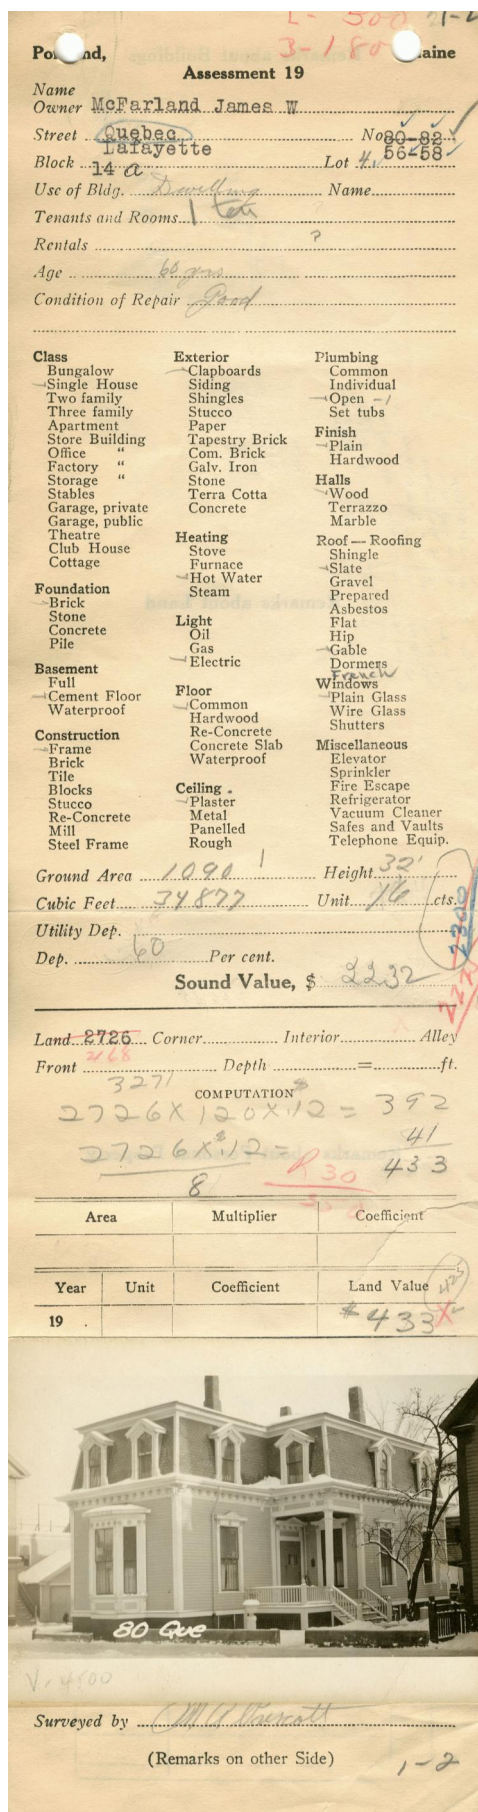 L- 500 21-2
3-180
Po nd, aine
Assessment 19
Name
Owner McFarland James W
Street Quebec No 80-82
Lafayette 56-58
Block 14 a Lot 4.
Use of Bldg. Dwelling Name
Tenants and Rooms 1 ten
Rentals ?
Age 60 yrs
Condition of Repair Good
Class
Bungalow
Single House
Two family
Three family
Apartment
Store Building
Office "
Factory "
Storage "
Stables
Garage, private
Garage, public
Theatre
Club House
Cottage
Foundation
Brick
Stone
Concrete
Pile
Basement
Full
Cement Floor
Waterproof
Construction
Frame
Brick
Tile
Blocks
Stucco
Re-Concrete
Mill
Steel Frame
Exterior
Clapboards
Siding
Shingles
Stucco
Paper
Tapestry Brick
Com. Brick
Galv. Iron
Stone
Terra Cotta
Concrete
Heating
Stove
Furnace
Hot Water
Steam
Light
Oil
Gas
Electric
Floor
Common
Hardwood
Re-Concrete
Concrete Slab
Waterproof
Ceiling
Plaster
Metal
Panelled
Rough
Plumbing
Common
Individual
Open -1
Set tubs
Finish
Plain
Hardwood
Halls
Wood
Terrazzo
Marble
Roof — Roofing
Shingle
Slate
Gravel
Prepared
Asbestos
Flat
Hip
Gable
Dormers
French
Windows
Plain Glass
Wire Glass
Shutters
Miscellaneous
Elevator
Sprinkler
Fire Escape
Refrigerator
Vacuum Cleaner
Safes and Vaults
Telephone Equip.
Ground Area 1090 Height 32'
Cubic Feet 34877 Unit 16 cts.
Utility Dep.
2300
Dep. 60 Per cent.
Sound Value, $ 2232
Land 2726 Corner Interior Alley
Front Depth = ft.
3271
COMPUTATION
2726 X 120 X .12 = 392
2726 X .12 = 41
8 433
R 30
Area Multiplier Coefficient
Year Unit Coefficient Land Value
425
19 . $433
80 Que
V. 4500
Surveyed by
(Remarks on other Side)
1-2